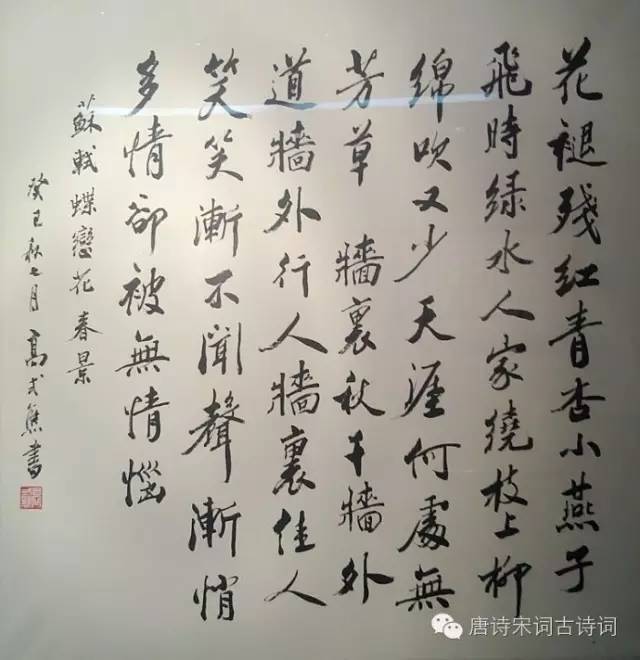 花褪殘紅青杏小燕子
飛時緑水人家繞枝上柳
綿吹又少天涯何處無
芳草 牆裏秋千牆外
道牆外行人牆裏佳人
笑笑漸不聞聲漸悄
多情卻被無情惱
蘇軾蝶戀花春景
癸巳秋七月 高式熊書
唐诗宋词古诗词